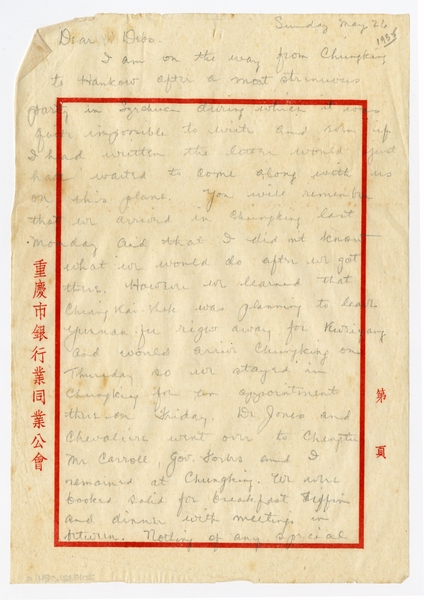 Sunday May 26
1935
Dear Debo.
I am on the way from Chungking
to Hankow after a most strenuous
party in Szechuen during which it was
quite impossible to write and even if
I had written the letter would just
have waited to come along with us
on this plane. You will remember
that we arrived in Chungking last
Monday and that I did not know
what we would do after we got
there. However we learned that
Chiang Kai-Shek was planning to leave
Yunnan-fu right away for Kweiyang
and would arrive Chungking on
Thursday so we stayed in
Chungking for an appointment
there on Friday. Dr. Jones and
Chevalier went over to Chengtu
Mr Carroll, Gov. and I
remained at Chungking. We were
booked solid for breakfast tiffin
and dinner with meetings in
between. Nothing of any special
重慶市銀行業同業公會
第 頁